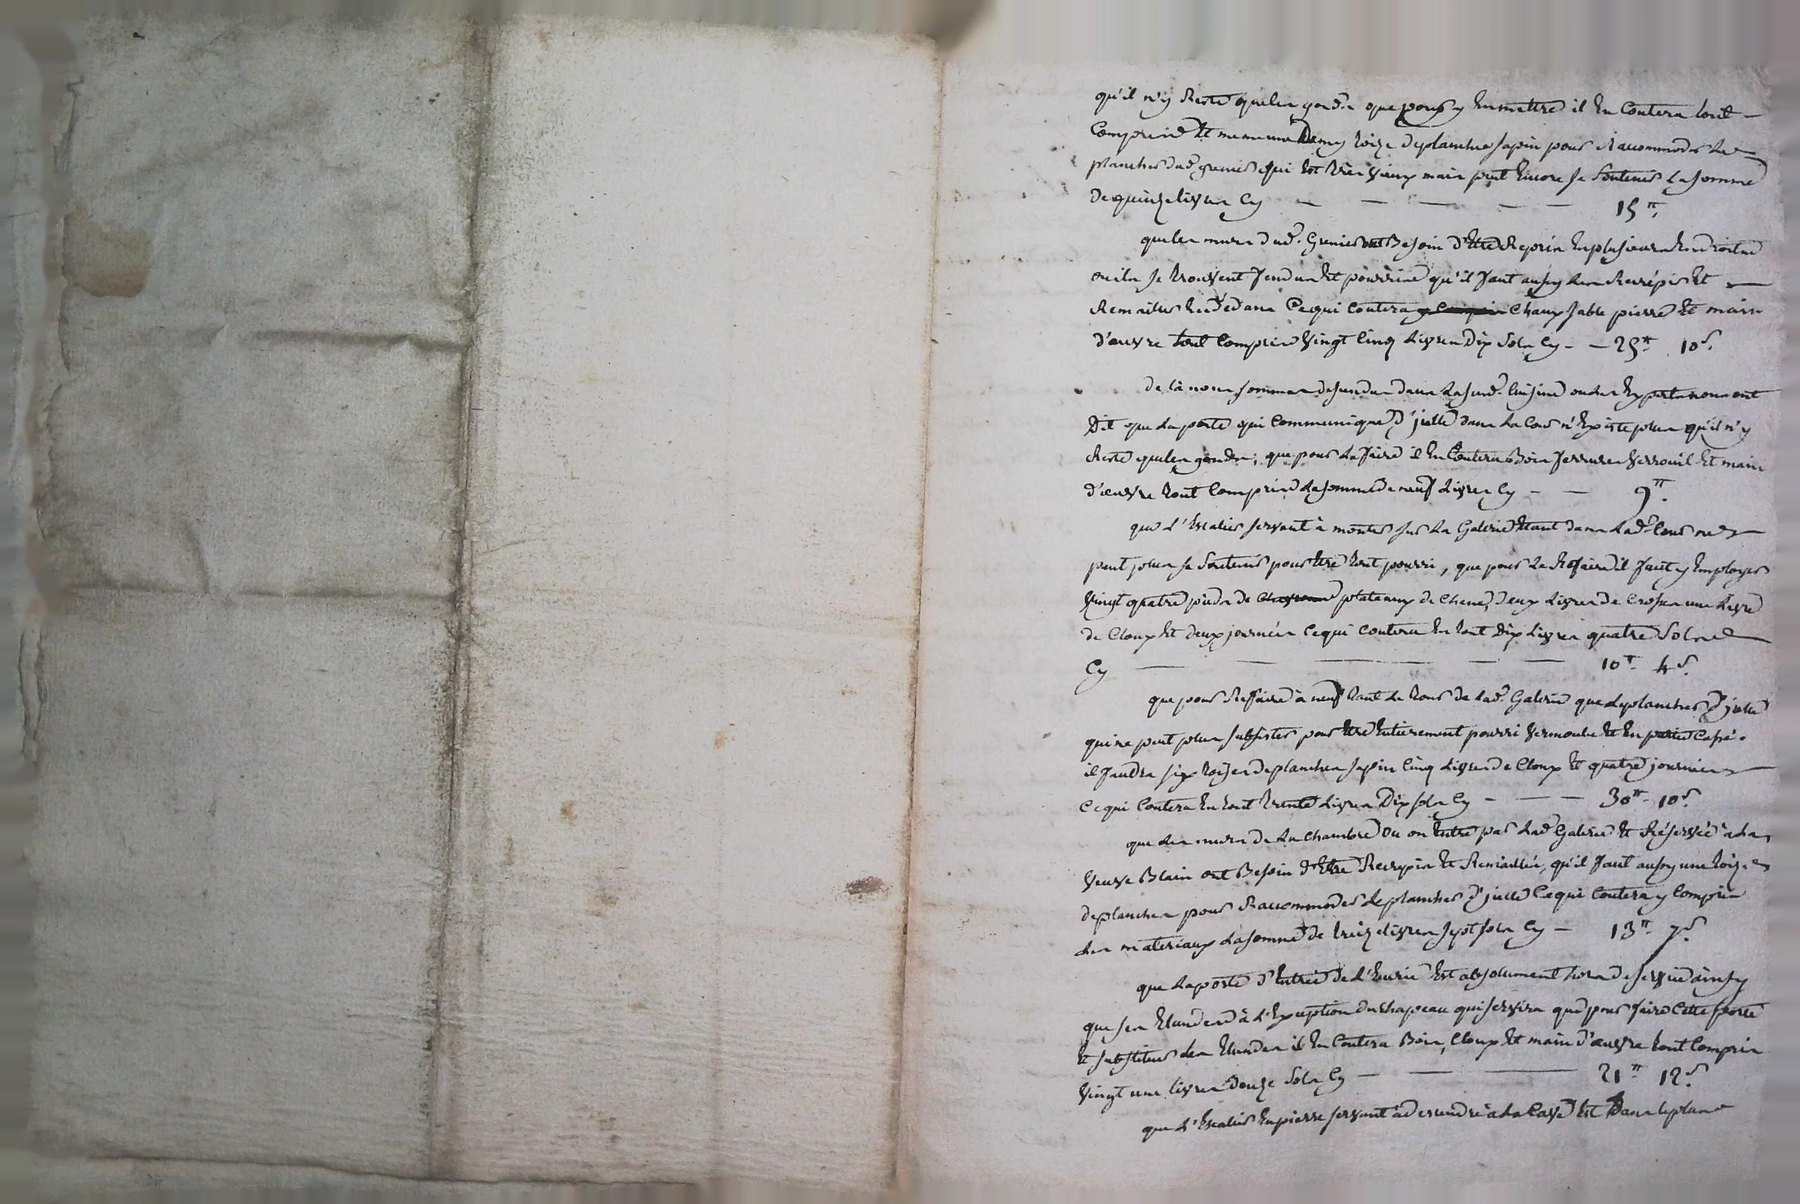 qu'il n'y Reste que les gonds que pour y En mettre il En Coutera tout
Compris Et meme une Demy toize de planches sapin pour Raccommoder Le
plancher dud. grenier qui Est très vieux mais peut Encore se soutenir La somme
de quinze livres Cy 15  tt.
que les murs dud. Grenier ont Besoin d'Etre Repris En plusieurs Endroits
ou ils se trouvent fendus Et pourris qu'il faut aussy les Recrépir Et
Remailler Ce qui Coutera y Compris Chaux sable pierre Et main
d'œuvre tout Compris vingt Cinq Livres Dix Sols Cy 25 tt 10 s.
de là nous sommes dessendus dans Lasusd. Cuisine ou les Experts nous ont
Dit que La porte qui Communique d'icelle dans La Cour n'Existe plus qu'il n'y
Reste que les gonds; que pour La faire il En Coutera Bois ferrures verrouil Et main
d'œuvre tout Compris La somme de neuf Livres Cy 9 tt.
que L'Escalier servant à monter sur La Galerie Etant dans Lad. Cour ne
peut plus se soutenir pour Etre tout pourri, que pour Le Refaire il faut y Employer
vingt quatre pieds de plateaux de Chene, deux Livres de Crosses une Livre
de Cloux Et deux journées Ce qui Coutera En tout Dix Livres quatre Sols
Cy 10 tt. 4 s.
que pour Refaire à neuf tant Le tour de Lad. Galerie que Le plancher d'icelle
qui ne peut plus subsister pour Etre Entierement pourri vermoulu Et En partie Cassé.
il faudra six toizes de planches sapin Cinq Livres de Cloux Et quatre journées
Ce qui Coutera En tout trente Livres Dix sols Cy 30 tt. 10 s.
que Les murs de La Chambre ou on Entre par Lad. Galerie Et Réservée à La
veuve Blain ont Besoin d'Etre Recrepis Et Remaillés, qu'il faut aussy une toize
de planches pour Raccommoder Le plancher d'icelle Ce qui Coutera y Compris
Les materiaux La somme de treize Livres sept sols Cy 13 tt. 7 s.
que La porte d'Entrée de L'Ecurie Est absolument hors de service ainsy
que ses à L'Exception du Chapeau qui servira que pour faire Cette porte
Et substituer des il En Coutera Bois, Cloux Et main d'œuvre tout Compris
vingt une livres Douze Sols Cy 21 tt 12 s.
que L'Escalier En pierre servant à descendre à La Cave Est Dans le plan